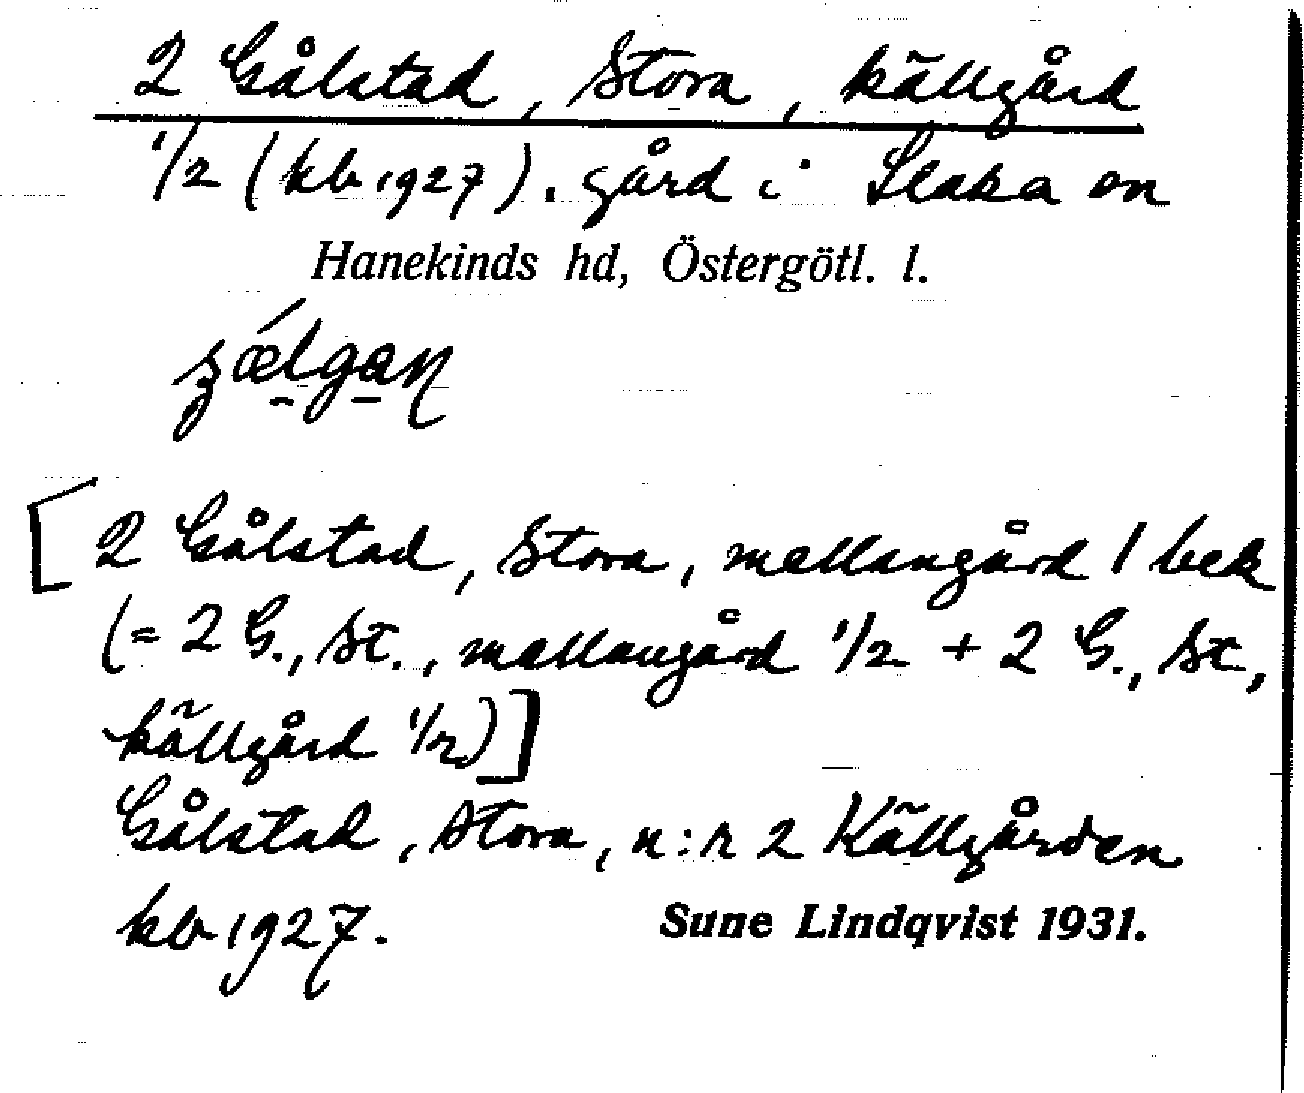 2 Gålstad, Stora, källgård
1/2 (kb 1927). gård i Slaka sn
Hanekinds hd, Östergötl. l.
[2 Gålstad, Stora, mellangård 1 bek
(= 2 G., St., mellangård 1/2 + 2 G., St.,
källgård 1/2)]
Gålstad, Stora, n:r 2 Källgården
kb 1927.
Sune Lindqvist 1931.